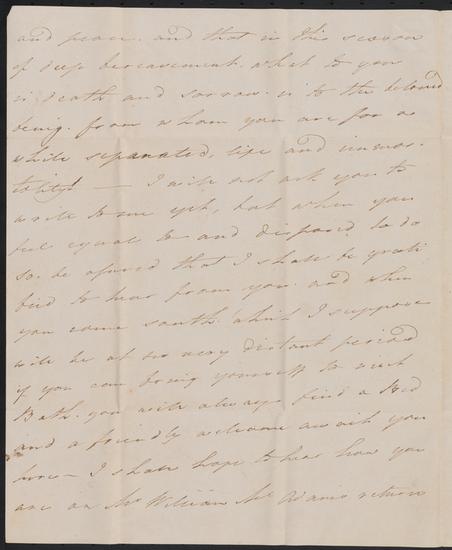 and peace. and that in this season
of deep bereavement. what to you
is death and sorrow. is to the beloved
being. from whom you are for a
while separated, life and immor-
tality! — I will not ask you to
write to me yet, but when you
feel equal to and disposed to do
so. be assured that I shall be grati
fied to hear from you. and when
you come south. which I suppose
will be at no very distant period
if you can bring yourself to visit
Bath. you will always find a Bed
and a friendly welcome await you
here — I shall hope to hear how you
are on Mr William McAdams return